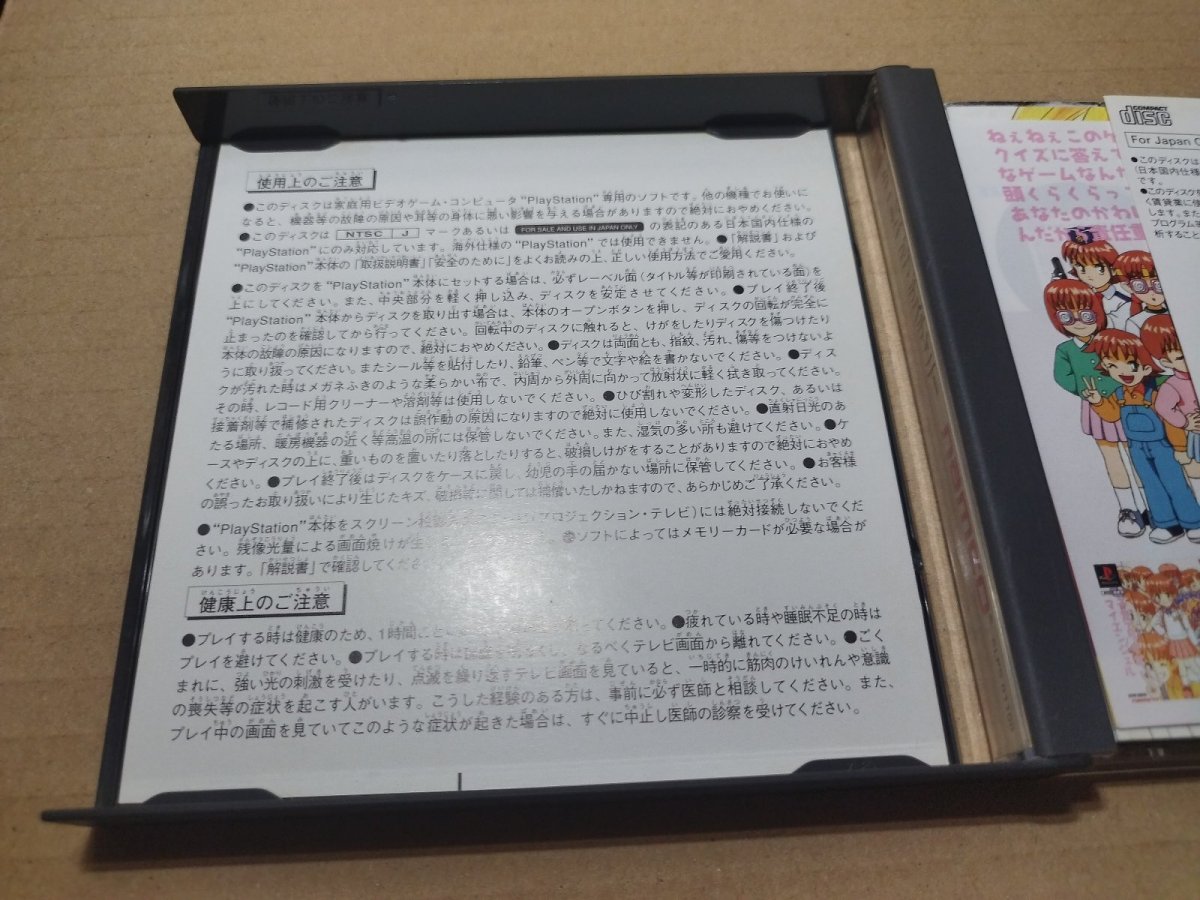 使用上のご注意
●このディスクは家庭用ビデオゲーム・コンピュータ“PlayStation”専用のソフトです。他の機種でお使いに
なると、機器等の故障の原因や耳等の身体に悪い影響を与える場合がありますので絶対におやめください。
●このディスクは NTSC J マークあるいは FOR SALE AND USE IN JAPAN ONLY の表記のある日本国内仕様の
“PlayStation”にのみ対応しています。海外仕様の“PlayStation”では使用できません。●「解説書」および
“PlayStation”本体の「取扱説明書」「安全のために」をよくお読みの上、正しい使用方法でご愛用ください。
●このディスクを“PlayStation”本体にセットする場合は、必ずレーベル面(タイトル等が印刷されている面)を
上にしてください。また、中央部分を軽く押し込み、ディスクを安定させてください。●プレイ終了後
“PlayStation”本体からディスクを取り出す場合は、本体のオープンボタンを押し、ディスクの回転が完全に
止まったのを確認してから行ってください。回転中のディスクに触れると、けがをしたりディスクを傷つけたり
本体の故障の原因になりますので、絶対におやめください。●ディスクは両面とも、指紋、汚れ、傷等をつけないよ
うに取り扱ってください。またシール等を貼付したり、鉛筆、ペン等で文字や絵を書かないでください。●ディス
クが汚れた時はメガネふきのような柔らかい布で、内周から外周に向かって放射状に軽く拭き取ってください。
その時、レコード用クリーナーや溶剤等は使用しないでください。●ひび割れや変形したディスク、あるいは
接着剤等で補修されたディスクは誤作動の原因になりますので絶対に使用しないでください。●直射日光のあ
たる場所、暖房機器の近く等高温の所には保管しないでください。また、湿気の多い所も避けてください。●ケ
ースやディスクの上に、重いものを置いたり落としたりすると、破損しけがをすることがありますので絶対におやめ
ください。●プレイ終了後はディスクをケースに戻し、幼児の手の届かない場所に保管してください。●お客様
の誤ったお取り扱いにより生じたキズ、破損等に関しては補償いたしかねますので、あらかじめご了承ください。
●“PlayStation”本体をスクリーン プロジェクション・テレビ)には絶対接続しないでくだ
さい。残像光量による画面焼けが生 ●ソフトによってはメモリーカードが必要な場合が
あります。「解説書」で確認してくだ
健康上のご注意
●プレイする時は健康のため、1時間ごと ってください。●疲れている時や睡眠不足の時は
プレイを避けてください。●プレイする時は なるべくテレビ画面から離れてください。●ごく
まれに、強い光の刺激を受けたり、点滅を繰り返すテレビ画面を見ていると、一時的に筋肉のけいれんや意識
の喪失等の症状を起こす人がいます。こうした経験のある方は、事前に必ず医師と相談してください。また、
プレイ中の画面を見ていてこのような症状が起きた場合は、すぐに中止し医師の診察を受けてください。
ねぇねぇこのゲ
クイズに答えて
なゲームなんだ
頭くらくらっ
あなたのかわい
んだか 任重
COMPACT
disc
For Japan O
●このディスクは
(日本国内仕様
です。
●このディスク
く賃貸業に使
します。また
プログラム
析すること